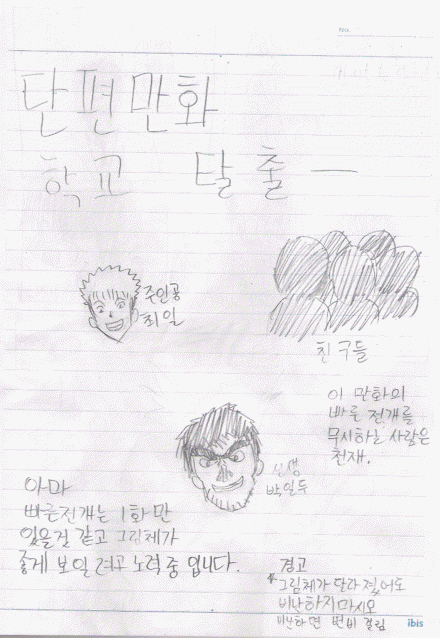 No.
단편만화
학교 탈출 ー
주인공
최일
친구들
이 만화의
빠른 전개를
무시하는 사람은
천재.
선생
박일두
아마
빠른전개는 1화만
있을것 같고 그림체가
좋게 보일려고 노력중 입니다.
경고
*그림체가 달라 졌어도
비난하지마시오
비난하면 변비 걸림
ibis